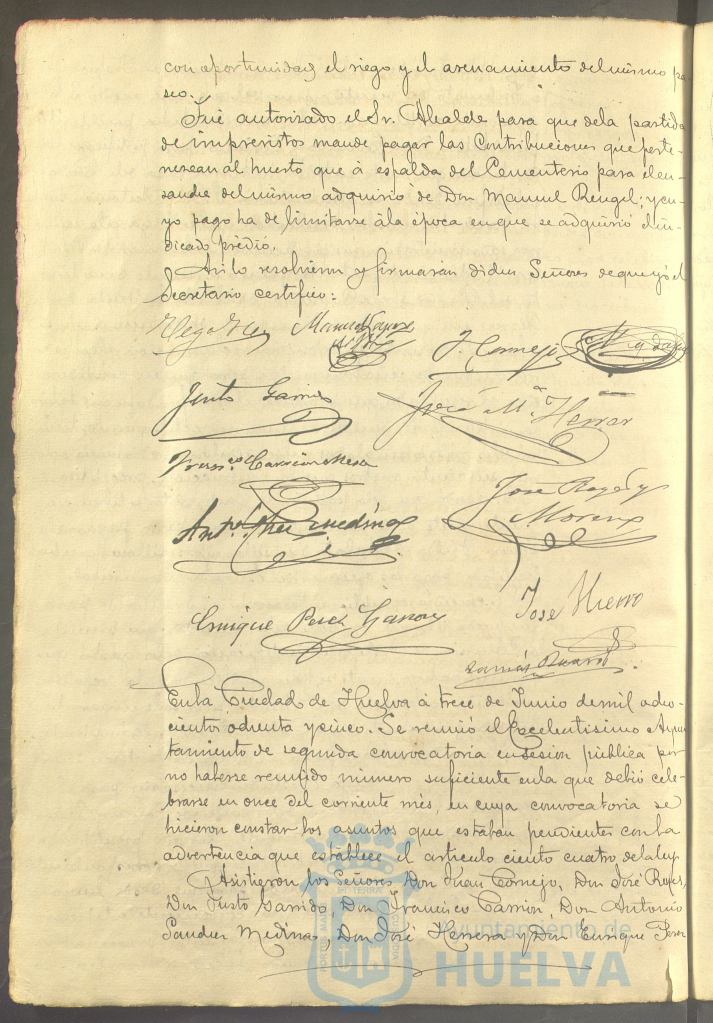 con oportunidad, el riego y el arenamiento del mismo pa-
seo.
Fué autorizado el Sr. Alcalde para que dela partida
de imprevistos mande pagar las Contribuciones que perte-
nezcan al huerto que á espalda del Cementerio para el en-
sanche del mismo adquirió de Don Manuel Rengel; y cu-
yo pago ha de limitarse ála época en que se adquirió el in-
dicado predio.
Asi lo resolvieron y firmarán dichos Señores de que yó el
Secretario certifico:
Manuel
J. Cornejo
Justo Garrido
José Mª Herrera
Franco. Carrión Mesa
José Roges y
Moreno
Antº Schez Medina
Enrique Perez
José Hierro
En la Ciudad de Huelva á trece de Junio de mil ocho-
cientos ochenta y cinco. Se reunió el Excelentisimo Ayun-
tamiento de segunda convocatoria en sesion pública por
no haberse reunido número suficiente en la que debió cele-
brarse en once del corriente més, en cuya convocatoria se
hicieron constar los asuntos que estaban pendientes con la
advertencia que establece el articulo ciento cuatro dela ley.
Asistieron los Señores Don Juan Cornejo, Don José Roges,
Don Justo Garrido, Don Francisco Carrion, Don Antonio
Sanchez Medina, Don José Herrera y Don Enrique Perez
Ayuntamiento de
HUELVA